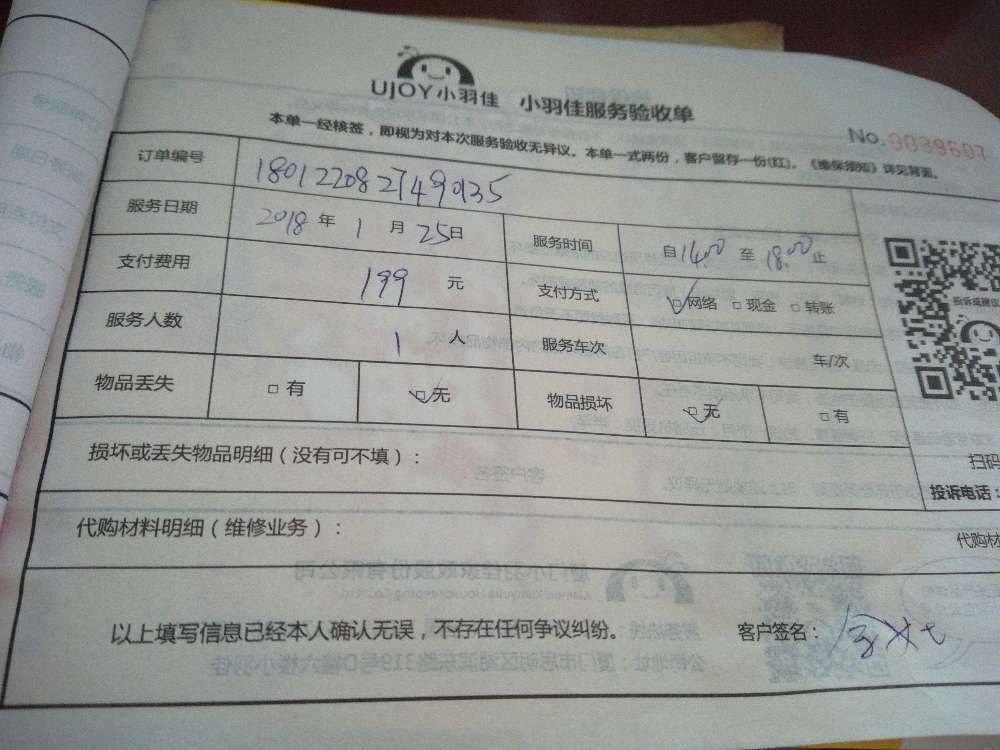 UJOY小羽佳 小羽佳服务验收单
No.0039607
本单一经核签，即视为对本次服务验收无异议。本单一式两份，客户留存一份(红)。《维保须知》详见背面。
订单编号 180122082749935
服务日期 2018 年 1 月 25 日 服务时间 自 14:00 至 18:00 止
支付费用 199 元 支付方式 ☑网络 □现金 □转账
服务人数 1 人 服务车次 车/次
物品丢失 □有 ☑无 物品损坏 ☑无 □有
投诉或建议
损坏或丢失物品明细（没有可不填）：
扫码
投诉电话：
代购材料明细（维修业务）：
代购材
以上填写信息已经本人确认无误，不存在任何争议纠纷。 客户签名：